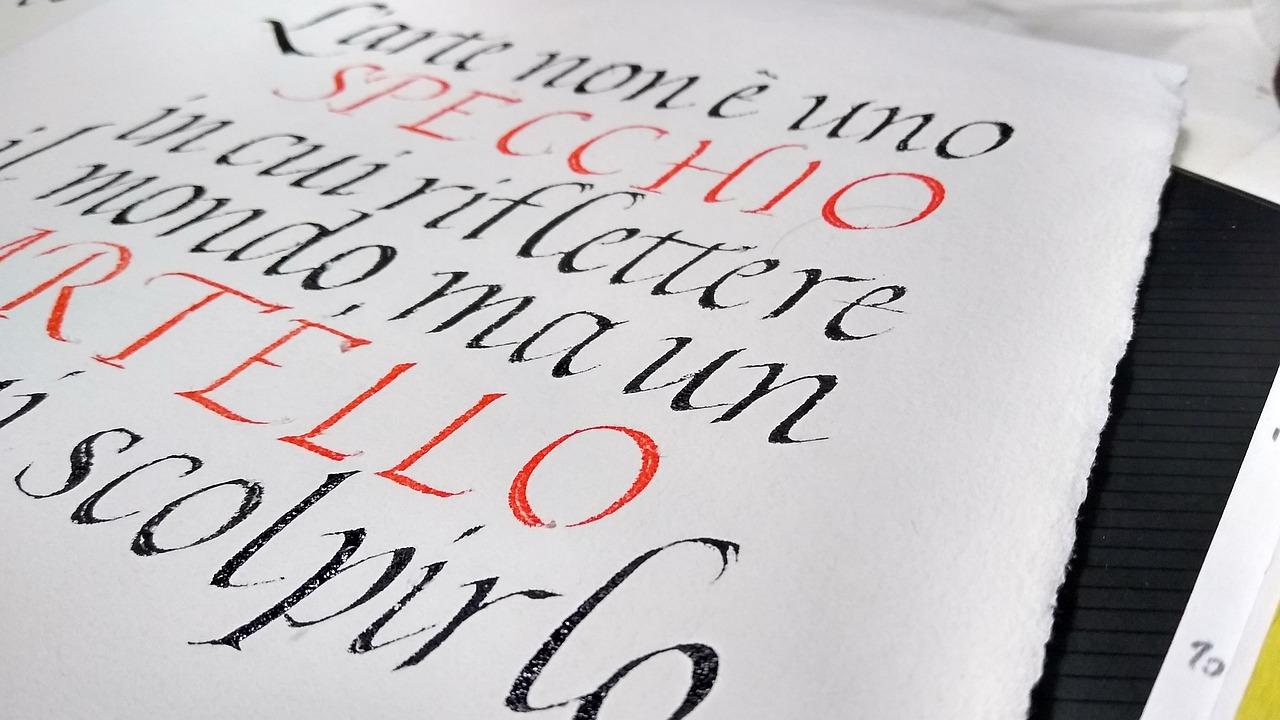 L'arte non è uno
SPECCHIO
in cui riflettere
il mondo, ma un
ARTELLO
scolpirlo